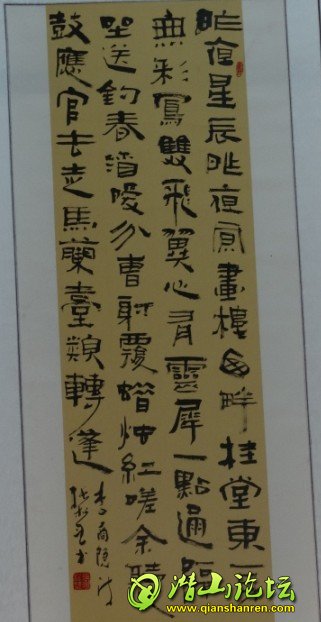 昨夜星辰昨夜風畫樓西畔桂堂東身
無彩鳳雙飛翼心有靈犀一點通隔
坐送鈎春酒暖分曹射覆蜡紅嗟余聽
鼓應官去走馬蘭臺類轉蓬
李商隱詩
書
潜山论坛
www.qianshanren.com